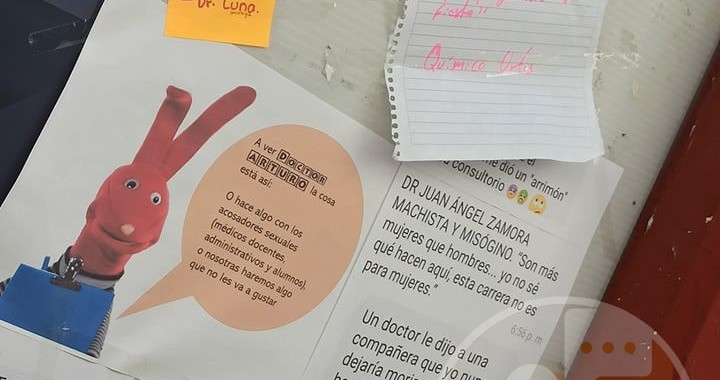 Dr. Luna.
fiesta"
Química
A ver DOCTOR
ARTURO la cosa
está así:
O hace algo con los
acosadores sexuales
(médicos docentes,
administrativos y alumnos),
o nosotras haremos algo
que no les va a gustar
me dió un "arrimón"
consultorio
DR JUAN ÁNGEL ZAMORA
MACHISTA Y MISÓGINO. "Son más
mujeres que hombres... yo no sé
qué hacen aquí, esta carrera no es
para mujeres."
6:56 p. m.
Un doctor le dijo a una
compañera que yo
dejaría